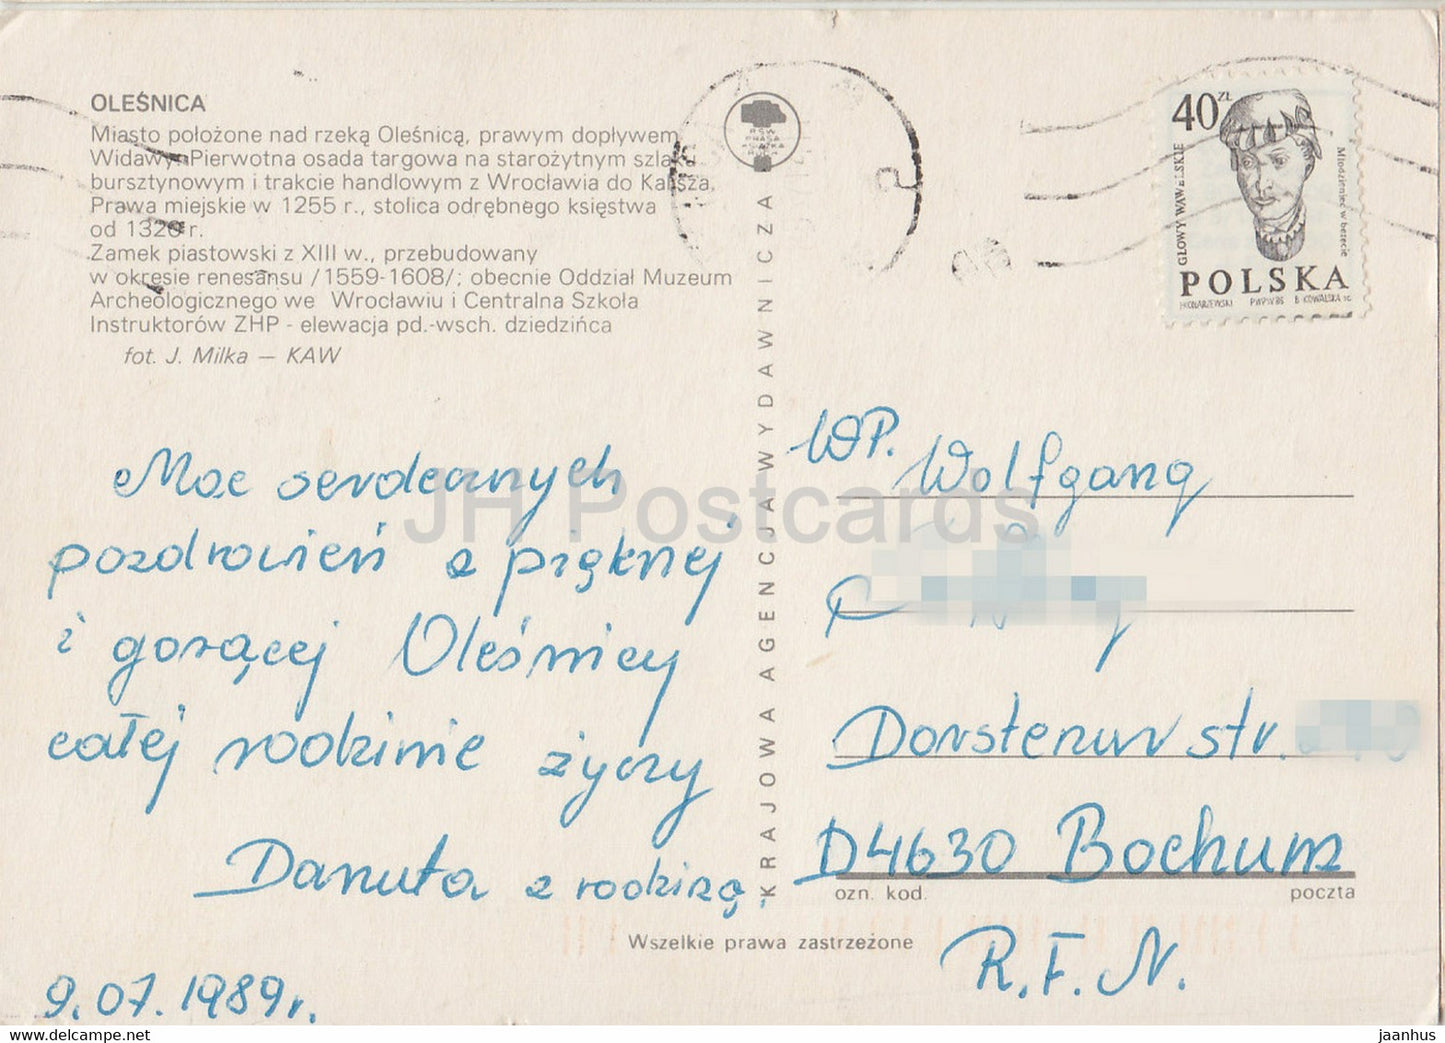 OLEŚNICA
Miasto położone nad rzeką Oleśnicą, prawym dopływem
Widawy. Pierwotna osada targowa na starożytnym szlaku
bursztynowym i trakcie handlowym z Wrocławia do Kalisza.
Prawa miejskie w 1255 r., stolica odrębnego księstwa
od 1320 r.
Zamek piastowski z XIII w., przebudowany
w okresie renesansu /1559-1608/; obecnie Oddział Muzeum
Archeologicznego we Wrocławiu i Centralna Szkoła
Instruktorów ZHP - elewacja pd.-wsch. dziedzińca
fot. J. Milka — KAW
RSW PRASA KSIĄŻKA RUCH
KRAJOWA AGENCJA WYDAWNICZA
40 ZŁ
GŁOWY WAWELSKIE
Młodzieniec w berecie
POLSKA
H.KONARZEWSKI PWPW 86 B.KOWALSKA sc.
Moc serdecznych
pozdrowień z pięknej
i gorącej Oleśnicy
całej rodzinie życzy
Danuta z rodziną.
9.07.1989r.
WP. Wolfgang
Dorstenur str.
D4630 Bochum
ozn. kod. poczta
R.F.N.
Wszelkie prawa zastrzeżone
JH Postcards
www.delcampe.net
jaanhus